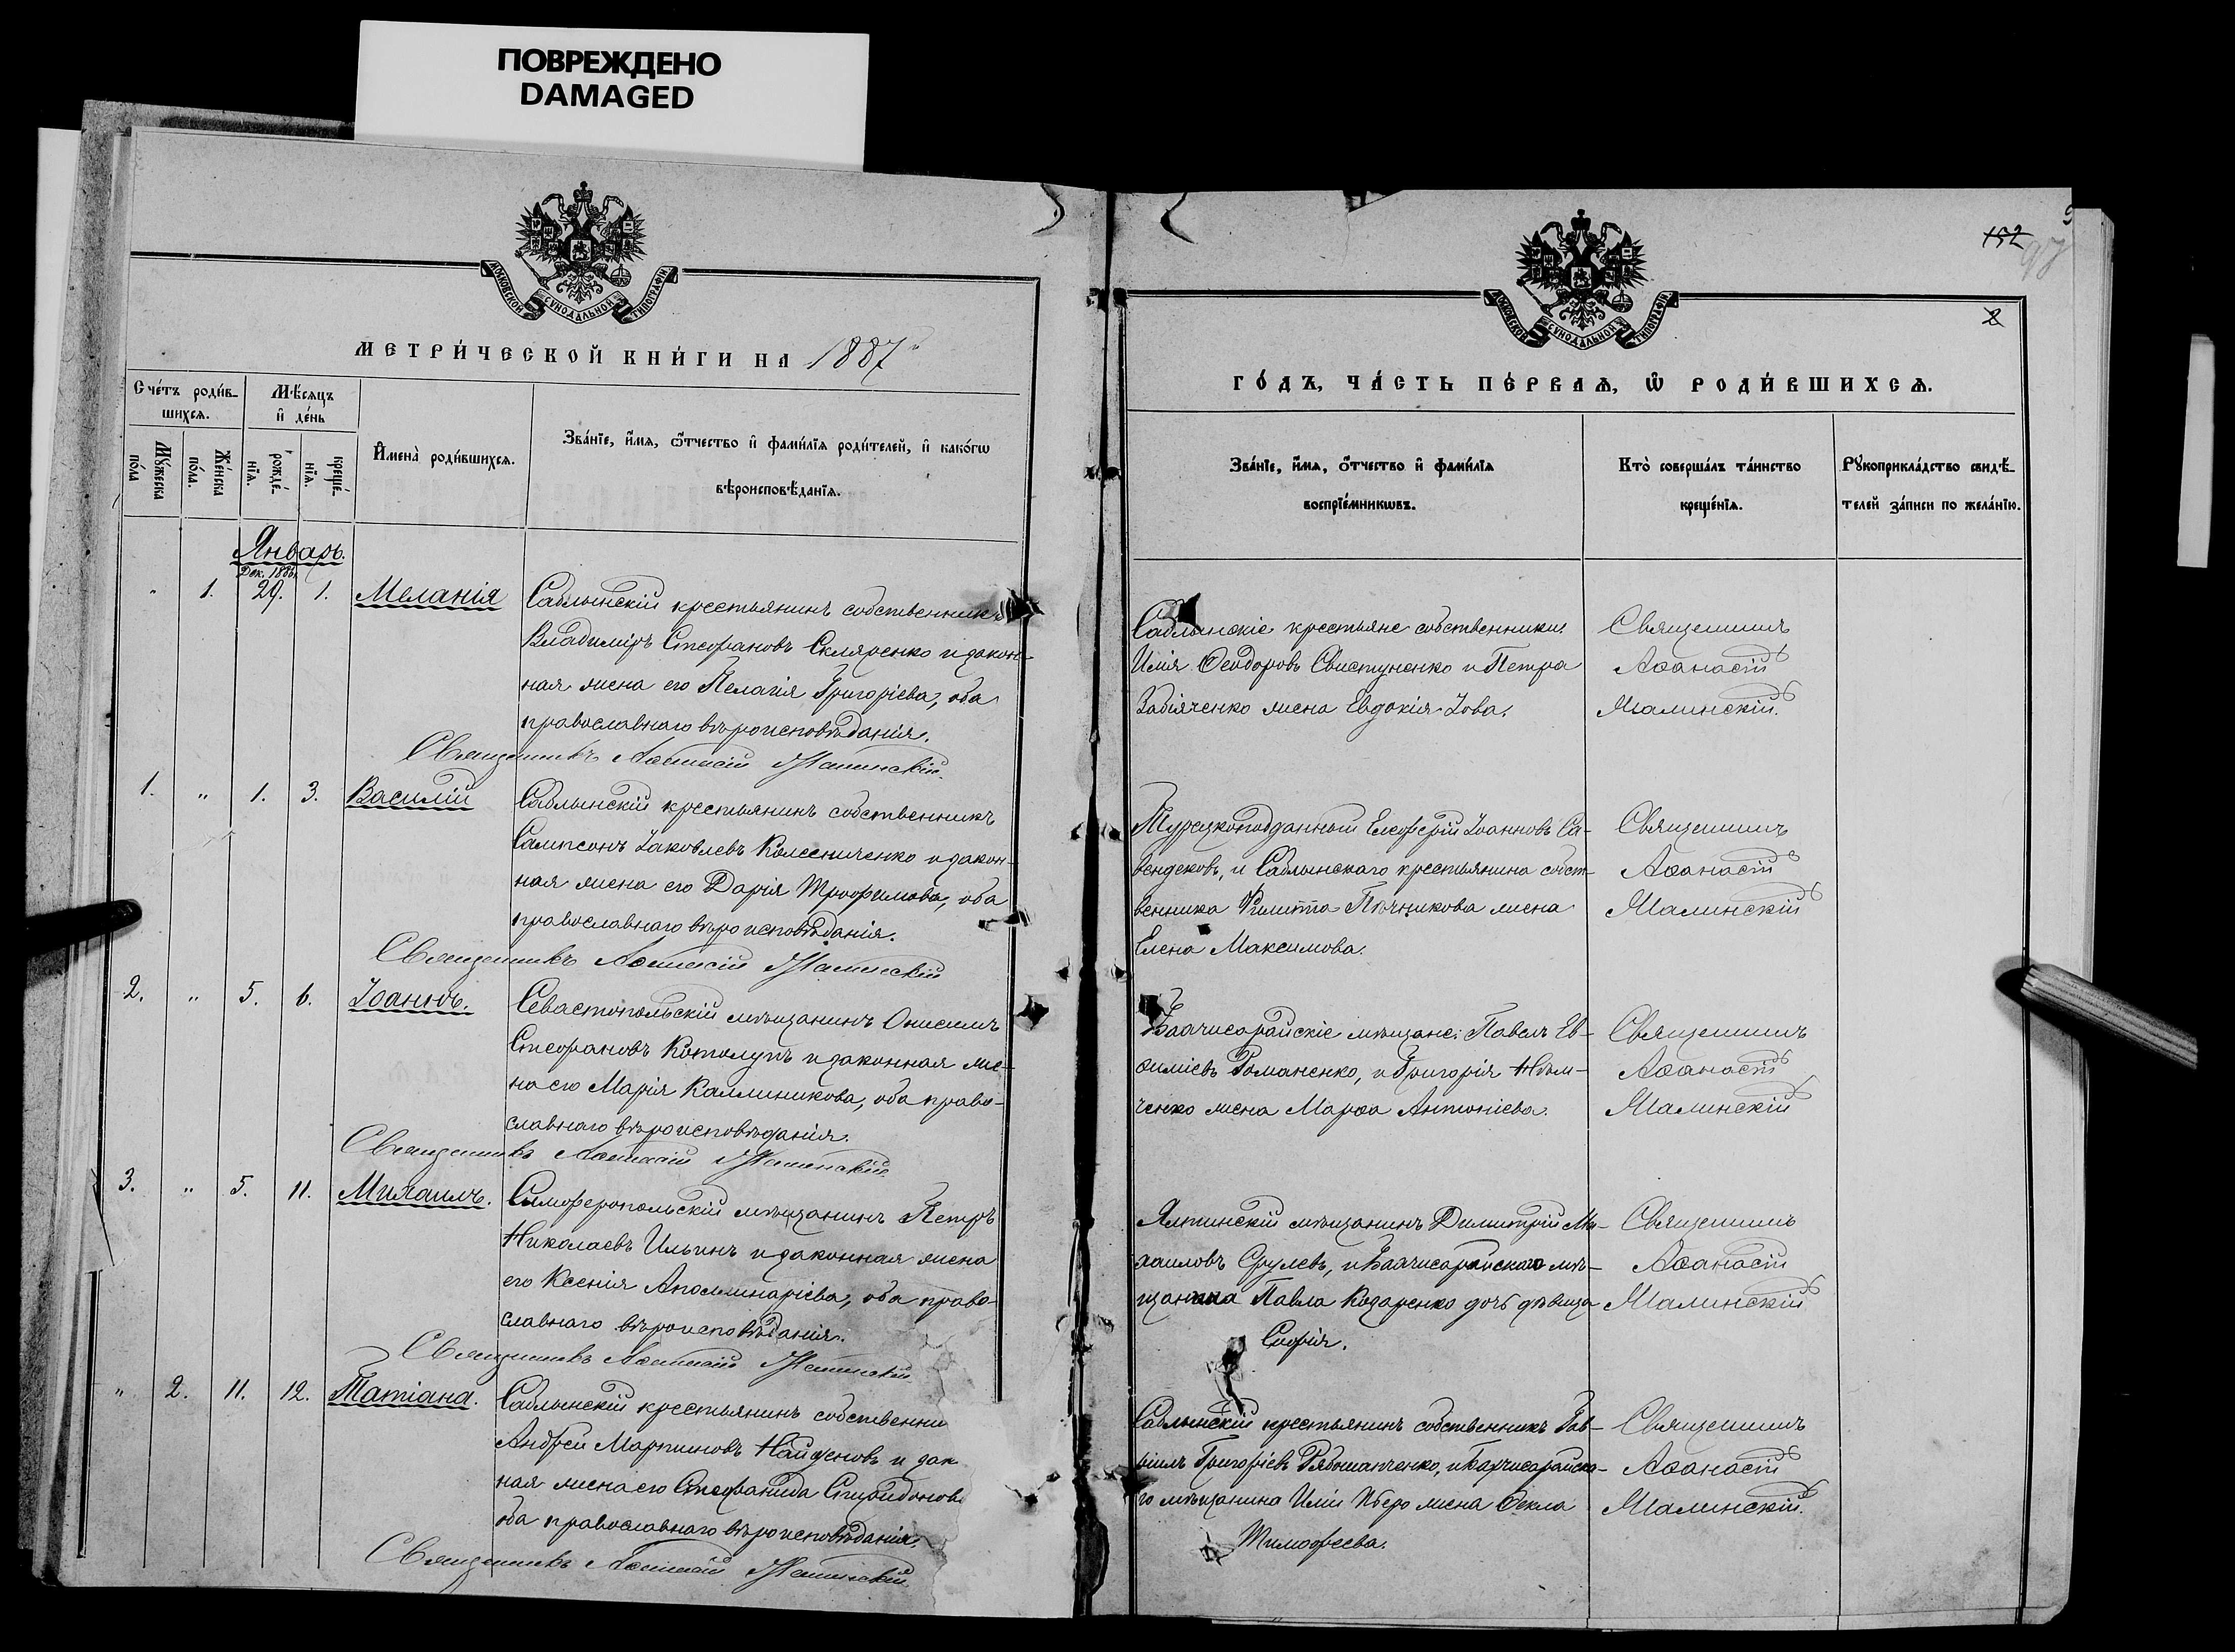 ПОВРЕЖДЕНО
DAMAGED
МОСКОВСКОЙ СѴНОДАЛЬНОЙ ТИПОГРАФІИ
МЕТРИ́ЧЕСКОЙ КНИ́ГИ НА 1887
Сче́тъ роди́в-
шихсѧ.
Мѣ́сяцъ
и҆ де́нь
Мꙋ́жеска
по́ла
Же́нска
по́ла.
рожде́-
нїѧ.
креще́-
нїѧ.
И҆мена̀ роди́вшихсѧ.
Зва́нїе, и҆́мѧ, ѻ҆́тчество и҆ фами́лїѧ роди́телей, и҆ како́гѡ
вѣроисповѣ́данїѧ.
Январь.
Дек. 1886.
" 1. 29. 1. Меланія
Саблынскій крестьянинъ собственникъ
Владиміръ Стефановъ Скляренко и закон-
ная жена его Пелагія Григорієва, оба
православнаго вѣроисповѣданія.
Священникъ Аѳанасій Малинскій.
1. " 1. 3. Василій
Саблынскій крестьянинъ собственникъ
Сампсонъ Іаковлевъ Колесниченко и закон-
ная жена его Дарія Трофимова, оба
православнаго вѣроисповѣданія.
Священникъ Аѳанасій Малинскій
2. " 5. 6. Іоаннъ.
Севастопольскій мѣщанинъ Онисимъ
Стефановъ Котолупъ и законная же-
на его Марія Каллиникова, оба право-
славнаго вѣроисповѣданія.
Священникъ Аѳанасій Малинскій.
3. " 5. 11. Михаилъ.
Симферопольскій мѣщанинъ Петръ
Николаевъ Ильинъ и законная жена
его Ксенія Аполлинаріева, оба право-
славнаго вѣроисповѣданія.
Священникъ Аѳанасій Малинскій
" 2. 11. 12. Татіана.
Саблынскій крестьянинъ собственни
Андрей Мартиновъ Найденовъ и зак
ная жена его Стефанида Спиридонов
оба православнаго вѣроисповѣданія.
Священникъ Аѳанасій Малинскій
152
97
2
МОСКОВСКОЙ СѴНОДАЛЬНОЙ ТИПОГРАФІИ
ГО́ДЪ, ЧА́СТЬ ПЕ́РВАѦ, Ѡ҆ РОДИ́ВШИХСѦ.
Зва́нїе, и҆́мѧ, ѻ҆́тчество и҆ фами́лїѧ
воспрїе́мникѡвъ.
Кто̀ соверша́лъ та́инство
креще́нїѧ.
Рꙋкоприкла́дство свидѣ́-
телей за́писи по жела́нїю.
Саблынскіе крестьяне собственники
Илія Ѳеодоровъ Свистуненко и Петра
Забіяченко жена Евдокія Іова.
Священникъ
Аѳанасій
Малинскій.
Турецкоподданный Елефѳерій Іоанновъ Са-
вендековъ, и Саблынскаго крестьянина собст-
венника Филиппа Пѣчникова жена
Елена Максимова.
Священникъ
Аѳанасій
Малинскій
Бахчисарайскіе мѣщане: Павелъ Ев-
ѳиміевъ Романенко, и Григорія Нѣм-
ченко жена Марѳа Антоніева.
Священникъ
Аѳанасій
Малинскій
Ялтинскій мѣщанинъ Димитрій Ми-
хаиловъ Срулевъ, и Бахчисарайскаго мѣ-
щанина Павла Козаренко дочь дѣвица
Софія.
Священникъ
Аѳанасій
Малинскій
Саблынскій крестьянинъ собственникъ Гав-
ріилъ Григоріевъ Рябошапченко, и Бахчисарайска-
го мѣщанина Иліи жена Ѳекла
Тимоѳеева.
Священникъ
Аѳанасій
Малинскій.